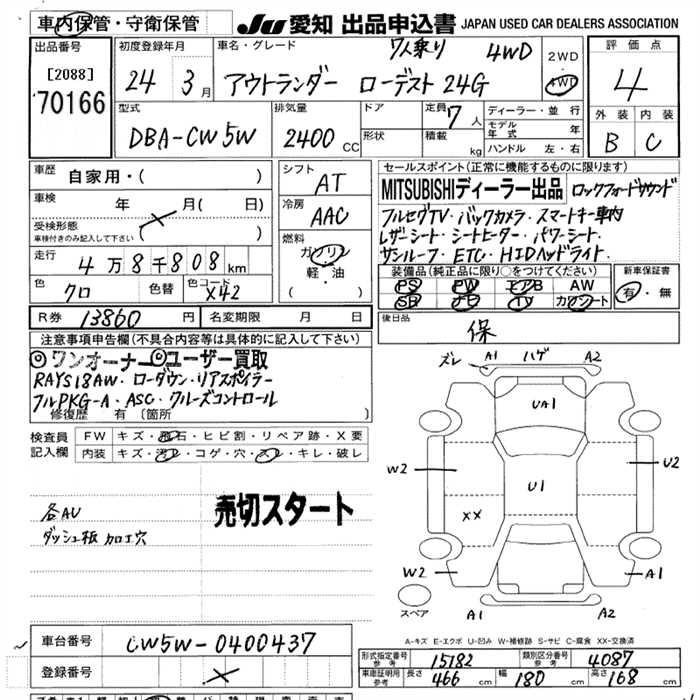 車内保管・守衛保管 JU 愛知 出品申込書 JAPAN USED CAR DEALERS ASSOCIATION
出品番号
[2088]
70166
初度登録年月
24年 3月
車名・グレード 7人乗り 4WD
アウトランダー ローデスト 24G
2WD
4WD
評価点
4
外装 内装
B C
型式
DBA-CW5W
排気量
2400 CC
ドア
形状
定員 7人
積載 kg
ディーラー・並行
モデル年式 年
ハンドル 左・右
車歴 自家用・( )
車検 年 月( 日)
受検形態
車検付きのみ記入して下さい ( )
走行 4万8千808km
色 クロ 色替 色コード X42
シフト AT
冷房 AAC
燃料 ガソリン
軽・油
( )
セールスポイント(正常に機能するものに限ります)
MITSUBISHIディーラー出品 ロックフォードサウンド
フルセグTV・バックカメラ・スマートキー車内
レザーシート・シートヒーター・パワーシート
サンルーフ・ETC・HIDヘッドライト
装備品(純正品に限り○をつけてください)
PS PW エアB AW
SR ナビ TV カワシート
新車保証書
有・無
R券 13860円 名変期限 月 日
後日品
保
注意事項申告欄(不具合内容等は具体的に記入して下さい)
◎ワンオーナー◎ユーザー買取
RAYS18AW・ローダウン・リアスポイラー
フルPKG-A・ASC・クルーズコントロール
修復歴 有 (箇所 )
検査員記入欄 FW キズ・飛石・ヒビ割・リペア跡・X要
内装 キズ・汚レ・コゲ・穴・スレ・キレ・破レ
各AU
ダッシュ板 加工穴
売切スタート
ズレ A1 ハゲ A2
UA1
W2 U2
U1
XX
W2 A1
スペア A1 A2
A-キズ E-エクボ U-凹み W-補修跡 S-サビ C-腐食 XX-交換済
車台番号 CW5W-0400437
登録番号
形式指定番号 参考 15182 類別区分番号 参考 4087
車庫証明用 参考 長さ 466 cm 幅 180 cm 高さ 168 cm